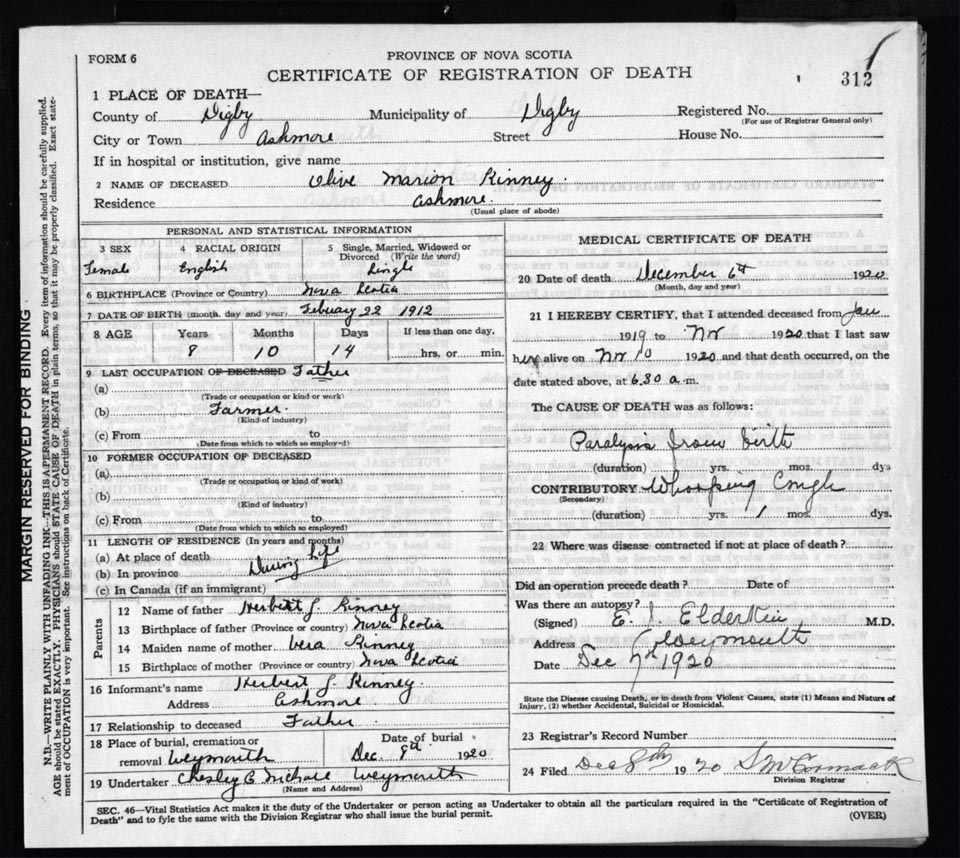 FORM 6
PROVINCE OF NOVA SCOTIA
CERTIFICATE OF REGISTRATION OF DEATH
312
1 PLACE OF DEATH—
County of Digby Municipality of Digby Registered No.
(For use of Registrar General only)
City or Town Ashmore Street House No.
If in hospital or institution, give name
2 NAME OF DECEASED Olive Marion Kinney.
Residence Ashmore.
(Usual place of abode)
PERSONAL AND STATISTICAL INFORMATION
3 SEX 4 RACIAL ORIGIN 5 Single, Married, Widowed or Divorced (Write the word)
Female English Single
6 BIRTHPLACE (Province or Country) Nova Scotia
7 DATE OF BIRTH (month, day and year) Febuary 22 1912
8 AGE Years Months Days If less than one day,
8 10 14 hrs. or min.
9 LAST OCCUPATION OF DECEASED Father
(a)
(Trade or occupation or kind of work)
(b) Farmer.
(Kind of industry)
(c) From to
(Date from which to which so employed)
10 FORMER OCCUPATION OF DECEASED
(a)
(Trade or occupation or kind of work)
(b)
(Kind of industry)
(c) From to
(Date from which to which so employed)
11 LENGTH OF RESIDENCE (In years and months)
(a) At place of death
(b) In province During Life
(c) In Canada (if an immigrant)
Parents
12 Name of father Herbert J. Kinney
13 Birthplace of father (Province or country) Nova Scotia
14 Maiden name of mother Vera Kinney
15 Birthplace of mother (Province or country) Nova Scotia
16 Informant's name Herbert J. Kinney.
Address Ashmore
17 Relationship to deceased Father.
18 Place of burial, cremation or removal Weymouth Date of burial Dec. 8th 1920
19 Undertaker Chesley Weymouth
(Name and Address)
MEDICAL CERTIFICATE OF DEATH
20 Date of death December 6th 1920
(Month, day and year)
21 I HEREBY CERTIFY, that I attended deceased from Jan
1919 to Nov 1920 that I last saw
her alive on Nov 10 1920 and that death occurred, on the
date stated above, at 6.30 a.m.
The CAUSE OF DEATH was as follows:
Paralysis from birth
(duration) yrs. mos. dys
CONTRIBUTORY Whooping Cough
(Secondary)
(duration) yrs. 1 mos. dys.
22 Where was disease contracted if not at place of death?
Did an operation precede death? Date of
Was there an autopsy?
(Signed) E. J. Elderkin M.D.
Address Weymouth
Date Dec 7th 1920
State the Disease causing Death, or in death from Violent Causes, state (1) Means and Nature of
Injury, (2) whether Accidental, Suicidal or Homicidal.
23 Registrar's Record Number
24 Filed Dec 8th 1920 S McCormack
Division Registrar
SEC. 46—Vital Statistics Act makes it the duty of the Undertaker or person acting as Undertaker to obtain all the particulars required in the "Certificate of Registration of
Death" and to fyle the same with the Division Registrar who shall issue the burial permit.
(OVER)
MARGIN RESERVED FOR BINDING
N.B.—WRITE PLAINLY WITH UNFADING INK—THIS IS A PERMANENT RECORD. Every item of information should be carefully supplied.
AGE should be stated EXACTLY. PHYSICIANS should STATE CAUSE OF DEATH in plain terms, so that it may be properly classified. Exact state-
ment of OCCUPATION is very important. See instructions on back of Certificate.